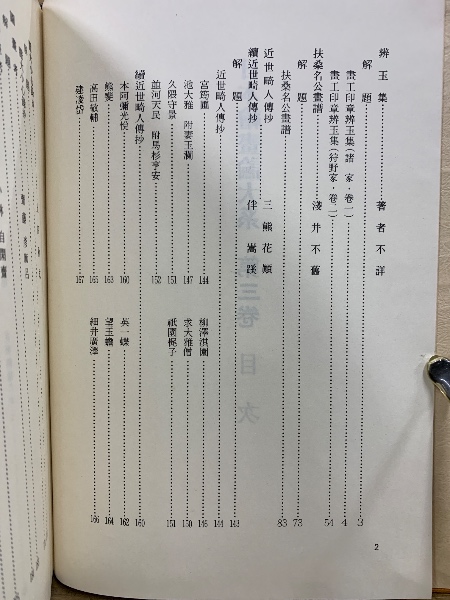 辨玉集……著者不詳
解題……3
畫工印章辨玉集(諸家・卷一)……4
畫工印章辨玉集(狩野家・卷二)……54
扶桑名公畫譜……淺井不舊
解題……73
扶桑名公畫譜……83
近世畸人傳抄……三熊花顚
續近世畸人傳抄……伴蒿蹊
解題……143
近世畸人傳抄……144
宮筠圃……144
柳澤淇園……146
池大雅 附妻玉瀾……147
求大雅僧……150
久隅守景……151
祇園梶子……151
並河天民 附馬杉亨安……152
續近世畸人傳抄……160
本阿彌光悅……160
英一蝶……162
熊斐……163
望玉蟾……164
高田敬輔……165
細井廣澤……166
建凌岱……167
2